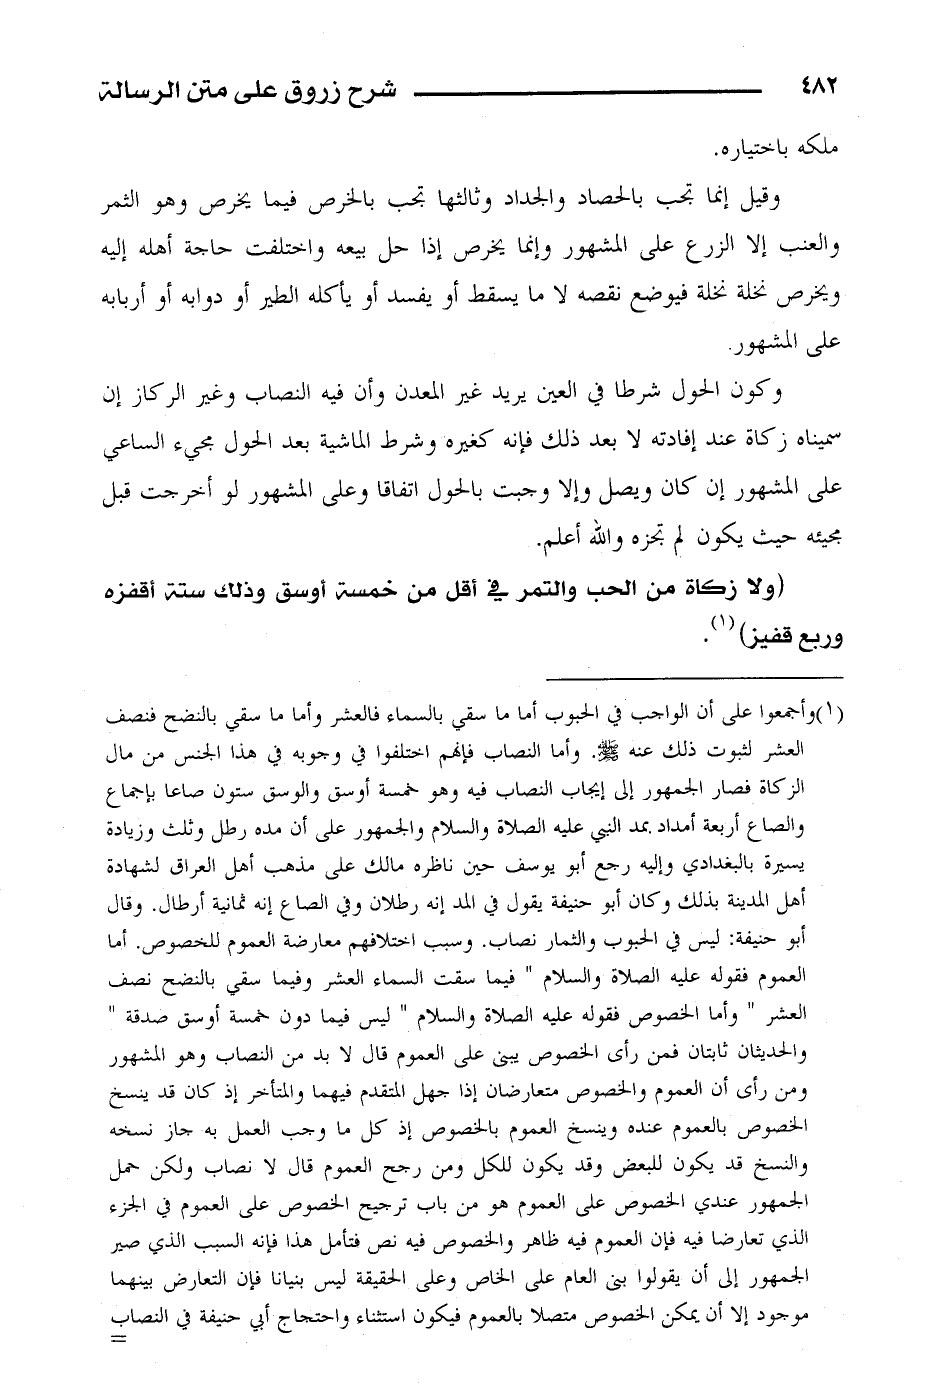 ٤٨٢ شرح زروق على متن الرسالة
ملكه باختياره.
وقيل إنما تجب بالحصاد والجداد وثالثها تجب بالخرص فيما يخرص وهو الثمر
والعنب إلا الزرع على المشهور وإنما يخرص إذا حل بيعه واختلفت حاجة أهله إليه
ويخرص نخلة نخلة فيوضع نقصه لا ما يسقط أو يفسد أو يأكله الطير أو دوابه أو أربابه
على المشهور.
وكون الحول شرطا في العين يريد غير المعدن وأن فيه النصاب وغير الركاز إن
سميناه زكاة عند إفادته لا بعد ذلك فإنه كغيره وشرط الماشية بعد الحول مجيء الساعي
على المشهور إن كان ويصل وإلا وجبت بالحول اتفاقا وعلى المشهور لو أخرجت قبل
مجيئه حيث يكون لم تجزه والله أعلم.
(ولا زكاة من الحب والتمر في أقل من خمسة أوسق وذلك ستة أقفزه
وربع قفيز)(١).
(١)وأجمعوا على أن الواجب في الحبوب أما ما سقي بالسماء فالعشر وأما ما سقي بالنضح فنصف
العشر لثبوت ذلك عنه ﷺ. وأما النصاب فإنهم اختلفوا في وجوبه في هذا الجنس من مال
الزكاة فصار الجمهور إلى إيجاب النصاب فيه وهو خمسة أوسق والوسق ستون صاعا بإجماع
والصاع أربعة أمداد بمد النبي عليه الصلاة والسلام والجمهور على أن مده رطل وثلث وزيادة
يسيرة بالبغدادي وإليه رجع أبو يوسف حين ناظره مالك على مذهب أهل العراق لشهادة
أهل المدينة بذلك وكان أبو حنيفة يقول في المد إنه رطلان وفي الصاع إنه ثمانية أرطال. وقال
أبو حنيفة: ليس في الحبوب والثمار نصاب. وسبب اختلافهم معارضة العموم للخصوص. أما
العموم فقوله عليه الصلاة والسلام " فيما سقت السماء العشر وفيما سقي بالنضح نصف
العشر " وأما الخصوص فقوله عليه الصلاة والسلام " ليس فيما دون خمسة أوسق صدقة "
والحديثان ثابتان فمن رأى الخصوص يبنى على العموم قال لا بد من النصاب وهو المشهور
ومن رأى أن العموم والخصوص متعارضان إذا جهل المتقدم فيهما والمتأخر إذ كان قد ينسخ
الخصوص بالعموم عنده وينسخ العموم بالخصوص إذ كل ما وجب العمل به جاز نسخه
والنسخ قد يكون للبعض وقد يكون للكل ومن رجح العموم قال لا نصاب ولكن حمل
الجمهور عندي الخصوص على العموم هو من باب ترجيح الخصوص على العموم في الجزء
الذي تعارضا فيه فإن العموم فيه ظاهر والخصوص فيه نص فتأمل هذا فإنه السبب الذي صير
الجمهور إلى أن يقولوا بنى العام على الخاص وعلى الحقيقة ليس بنيانا فإن التعارض بينهما
موجود إلا أن يمكن الخصوص متصلا بالعموم فيكون استثناء واحتجاج أبي حنيفة في النصاب
=